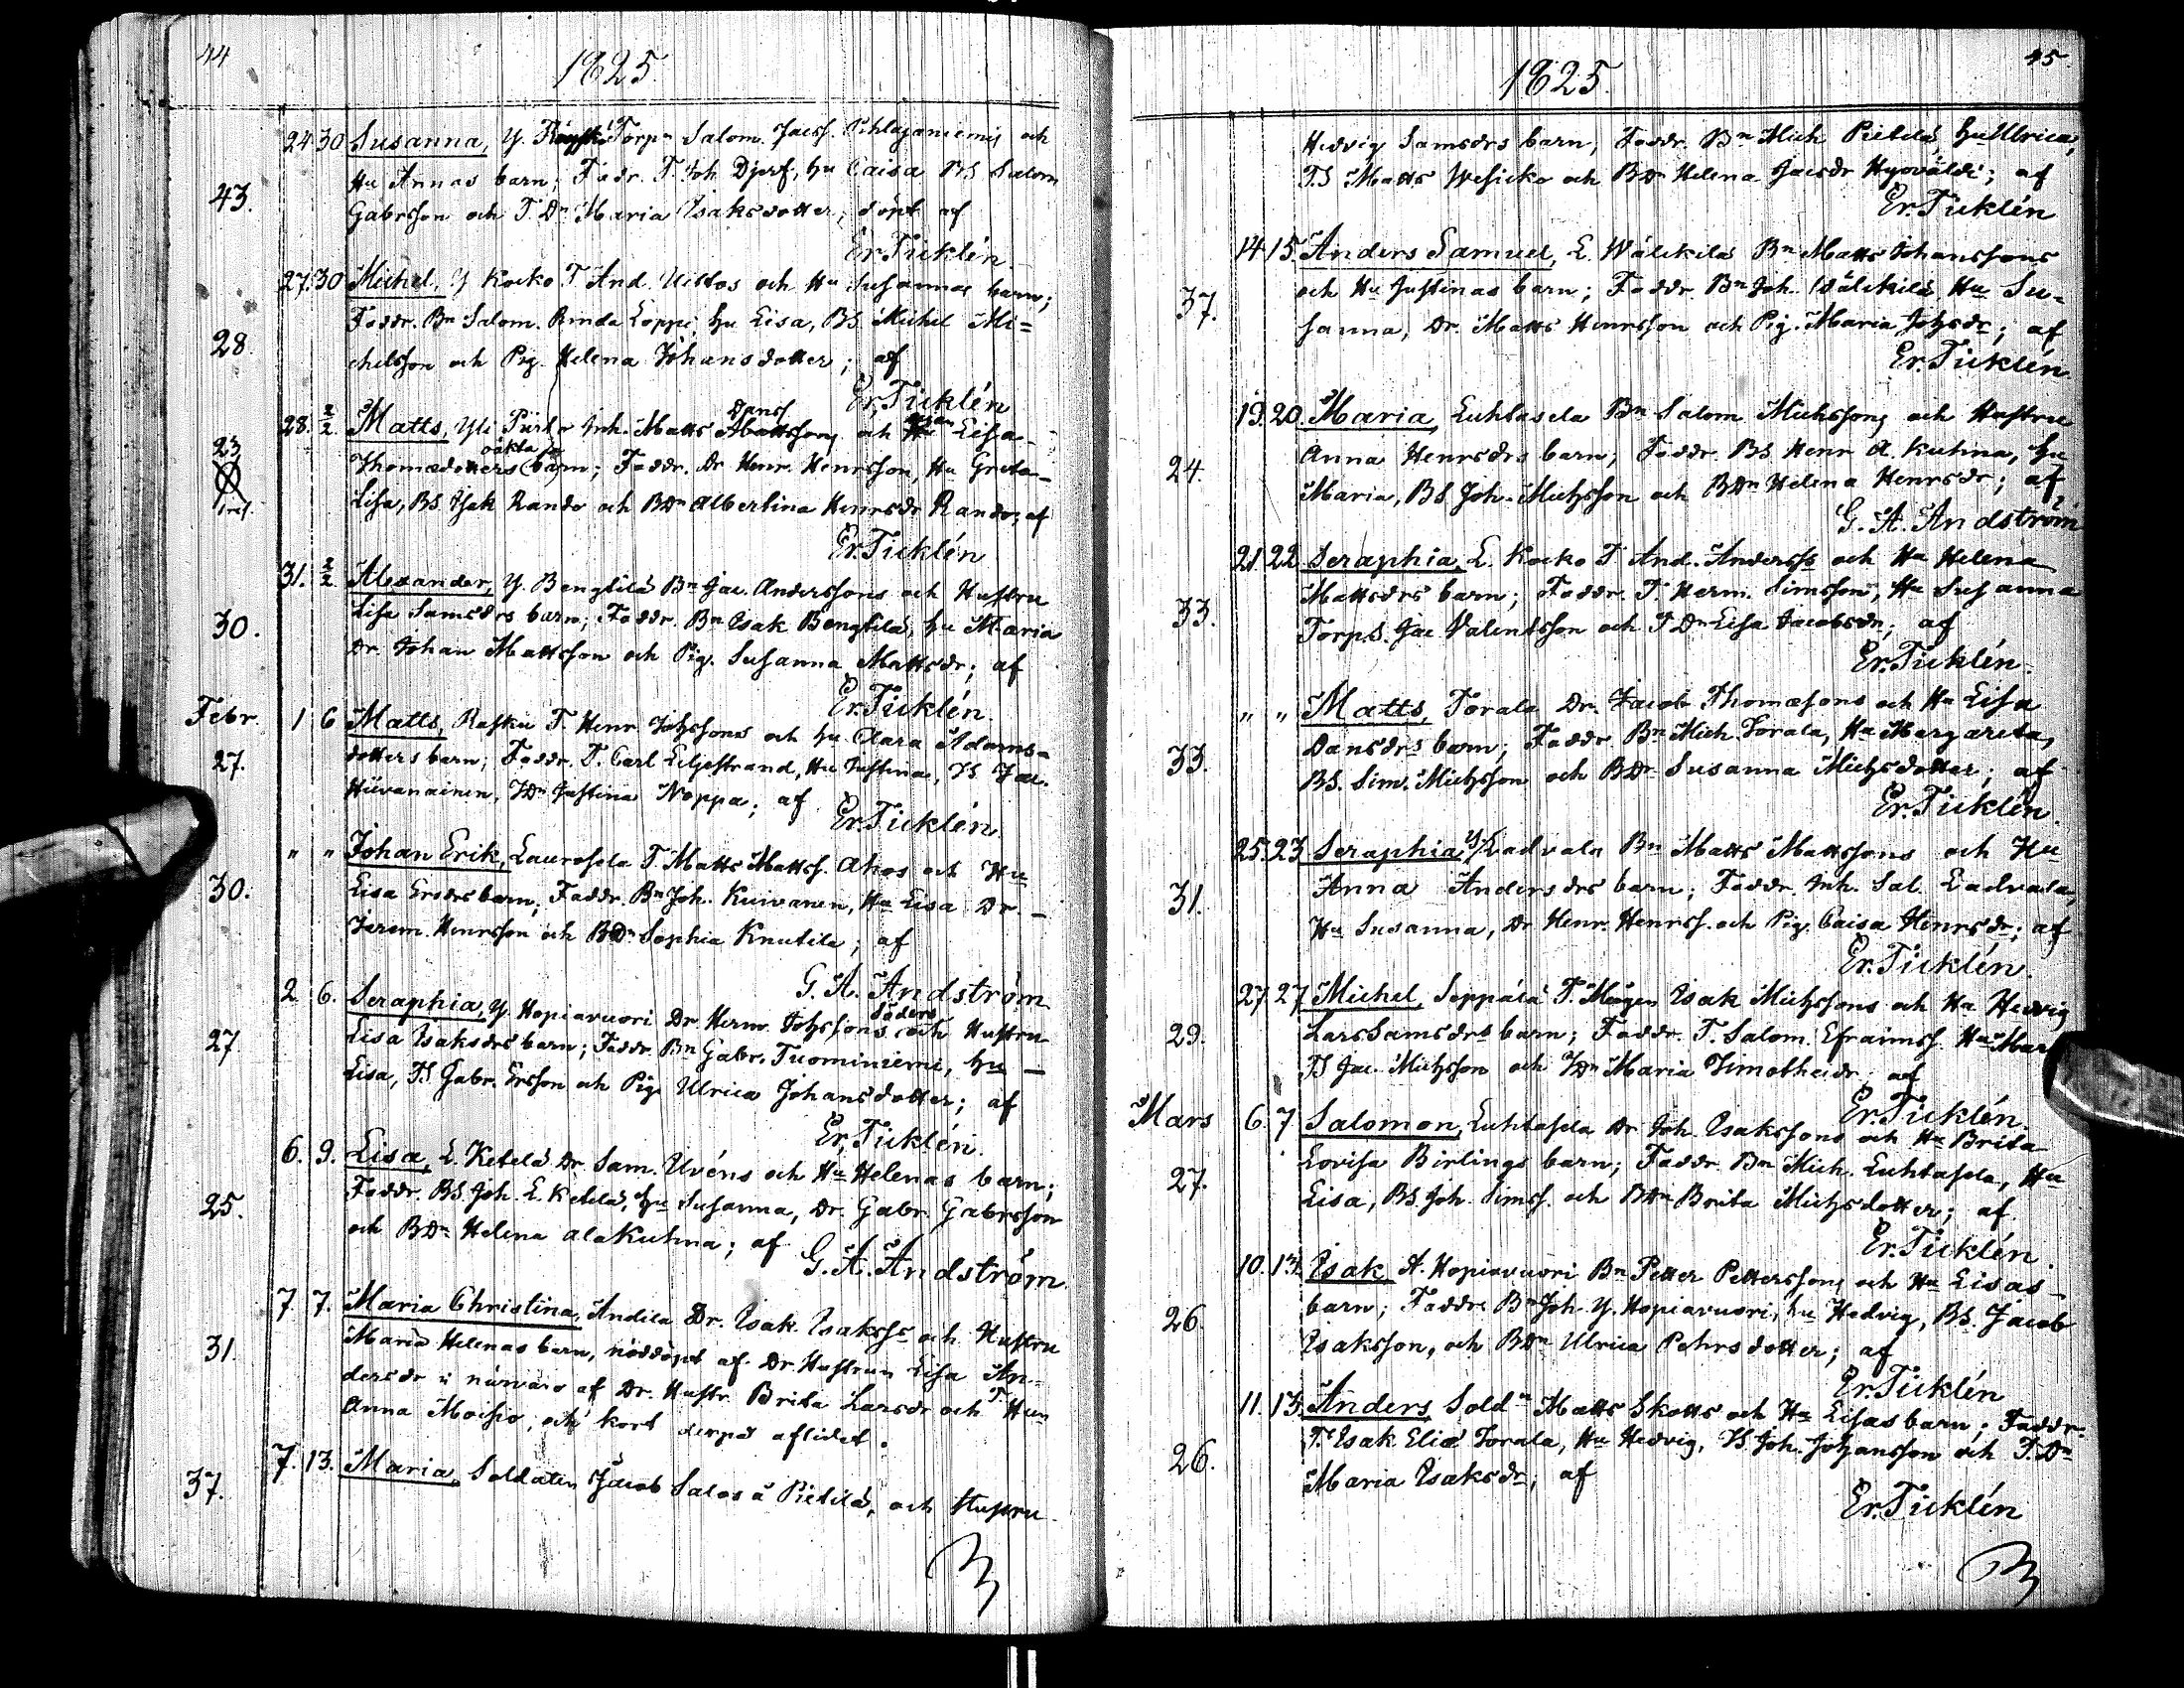 44
1825
24 30 Susanna, Y. Torpn Salom. Jacsf. Pihlajaniemis och
Hu Annas barn; Fadr. T. Joh Djerf, hu Caisa BS Salom
43.
Gabrsson och T. Dn Maria Isaksdotter; döpt af
Er. Ticklén
27. 30 Michel, Y Kocko T. And. Uistos och Hu Susannas barn;
Faddr. Bn Salom. Rinda Loppi, hu Lisa, BS. Michel Mi=
28.
chelsson och Pig. Helena Johansdotter; af
Er. Ticklén
Dansf.
28. 2/2 Matts, Yli Pirto Inh. Matts Mattssons och Lisa
23
oäkta
Thomædotters barn; Faddr. Dr. Henr. Henrsson, Hu Greta
Lisa, BS. Isak Rando och BDn Albertina Henrsdr Rando; af
Er. Ticklén
31. 2/2 Alexander, Y. Bengtilä Bn Jac. Anderssons och Hustru
Lisa Samsdrs barn; Faddr. Bn Isak Bengtilä, hu Maria
30.
Dr. Johan Mattsson och Pig. Susanna Mattsdr; af
Er. Ticklén
Febr. 1 6 Matts, Rasku T. Henr. Johssons och hu Clara Adams=
27.
dotters barn; Faddr. T. Carl Liljestrand, Hu Justina, TS. Jac.
Hiivanainen, TDn Justina Noppa; af
Er. Ticklén
" " Johan Erik, Laurosela T. Matts Mattsf. Ahos och Hu
30.
Lisa Ersdrs barn; Faddr. Bn Joh. Kuivanen, Hu Lisa Dr.
Jerem. Henrsson och BDn Sophia Knutila; af
G. A. Andström
2 6. Seraphia, Y. Hopiavuori Dr. Herm. Johssons Söders och Hustru
27.
Lisa Isaksdrs barn; Faddr. Bn Gabr. Tuominiemi, hu
Lisa, TS. Gabr. Ersson och Pig Ulrica Johansdotter; af
Er. Ticklén
6. 9. Lisa, L. Ketelä Dr. Sam. Uvéns och Hu Helenas barn;
25.
Faddr. BS. Joh. L. Ketelä, hu Susanna, Dr. Gabr. Gabrsson
och BDn Helena alaKuhna; af
G. A. Andström
7 7. Maria Christina, Andila Dr. Isak Isaksss och Hustru
31.
Maria Helenas barn, nöddöpt af Dr. Hustrun Lisa An=
dersdr i närvaro af Dr. Hustr. Brita Larsdr och T. Hun
Anna Moisio, och kort derpå aflidet.
7. 13. Maria, Soldaten Jacob Salos å Pietilä, och Hustru
37.
45
1825.
Hedvig Samsdrs barn, Faddr. Bn Mich Pietilä, hu Ulrica,
TS Matts Wesicko och BDn Helena Jacsdr Hyoväldi; af
Er. Ticklén
14 15 Anders Samuel, L. Wälckilä Bn Matts Johanssons
37.
och Hu Justinas barn; Faddr. Bn Joh. Wälckilä Hu Su=
sanna, Dr. Matts Henrsson och Pig. Maria Johsdr; af
Er. Ticklén
19. 20. Maria, Luhtasela Bn Salom Michssons och Hustru
24.
Anna Henrsdrs barn; Faddr. BS Henr A. Kuhna, hu
Maria, BS Joh. Michsson och BDn Helena Henrsdr; af
G. A. Andström
21. 22 Seraphia, L. Kocko T. And. Anderssfs och Hu Helena
33.
Mattsdrs barn; Faddr. T. Herm. Simsson, Hu Susanna
TorpS. Jac Valentsson och T Dn Lisa Jacobsdr; af
Er. Ticklén
" " Matts, Torala Dr. Jacob Thomæsons och Hu Lisa
33.
Dansdrs barn; Faddr. Bn Mich. Torala, Hu Margareta,
BS. Sim. Michsson och BDr Susanna Michsdotter; af
Er. Ticklén.
25. 23 Seraphia, Y. Ladvala Bn Matts Mattssons och Hu
31.
Anna Andersdrs barn; Faddr. Inh. Sal. Ladvala,
Hu Susanna, Dr Henr. Henrsf. och Pig. Caisa Henrsdr; af
Er. Ticklén.
27. 27 Michel, Seppälä T. Mågen Isak Michssons och Hu Hedvig
29.
Lars Samsdrs barn; Faddr. T. Salom. Efraimsf. Hu Mar
TS Jac. Michsson och TDn Maria Timotheidr; af
Er. Ticklén.
Mars 6. 7 Salomon, Luhtasela Dr. Joh. Isakssons och Hu Brita
27.
Lovisa Birlings barn; Faddr. Bn Mich. Luhtasela, Hu
Lisa, BS. Joh. Simsf. och BDn Brita Michsdotter; af
Er. Ticklén
10. 13. Isak, A. Hopiavuori Bn Petter Petterssons och Hu Lisas
26.
barn; Faddr. Bn Joh. Y. Hopiavuori, hu Hedvig, BS. Jacob
Isaksson, och BDn Ulrica Pehrsdotter; af
Er. Ticklén
11. 13. Anders, Soldn Matts Skotts och Hu Lisas barn; Faddr.
26.
T. Isak Eliæ Torala, Hu Hedvig, TS. Joh. Johansson och T. Dn
Maria Isaksdr; af
Er. Ticklén